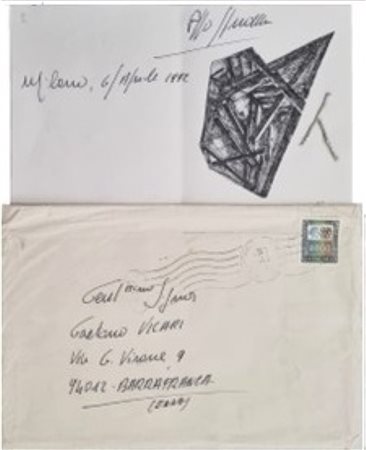 Milano, 6 Aprile 1992
Gent.mo Signor
Gaetano VICARI
Via G. 9
94012 - BARRAFRANCA
(ENNA)